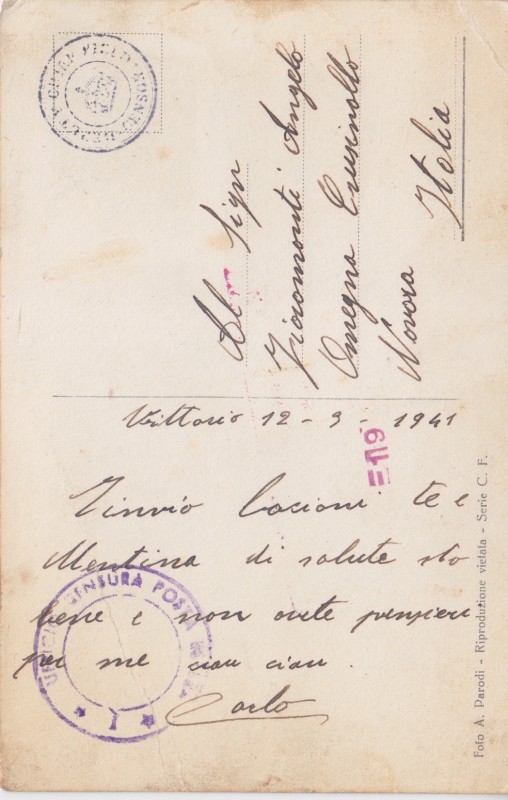 Al Sign
Fioramonti Angelo
Omegna Crusinallo
Novara
Italia
Vittorio 12 - 3 - 1941
T'invio bacioni te e
Mentina di salute sto
bene e non avete pensieri
per me ciau ciau.
Carlo
E119
UFFICIO CENSURA POSTA
Foto A. Parodi - Riproduzione vietata - Serie C. F.